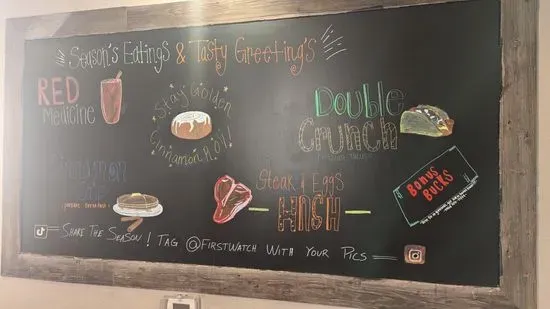 Season's Eatings & Tasty Greeting's
RED
Medicine
Stay Golden
Cinnamon Roll!
Double
Crunch
Steak & Eggs
HASH
BONUS
BUCKS
Share The Season! Tag @Firstwatch With Your Pics